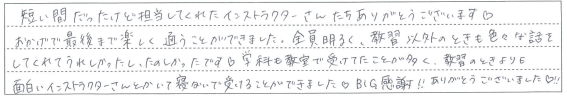 短い間だったけど担当してくれたインストラクターさんたちありがとうございます♡
おかげで最後まで楽しく通うことができました。全員明るく、教習以外のときも色々な話を
してくれてうれしかったし、たのしかったです♡学科も教室で受けてたことが多く、教習のときよりも
面白いインストラクターさんとかいて寝ないで受けることができました♡BIG感謝!!ありがとうございました♡!!